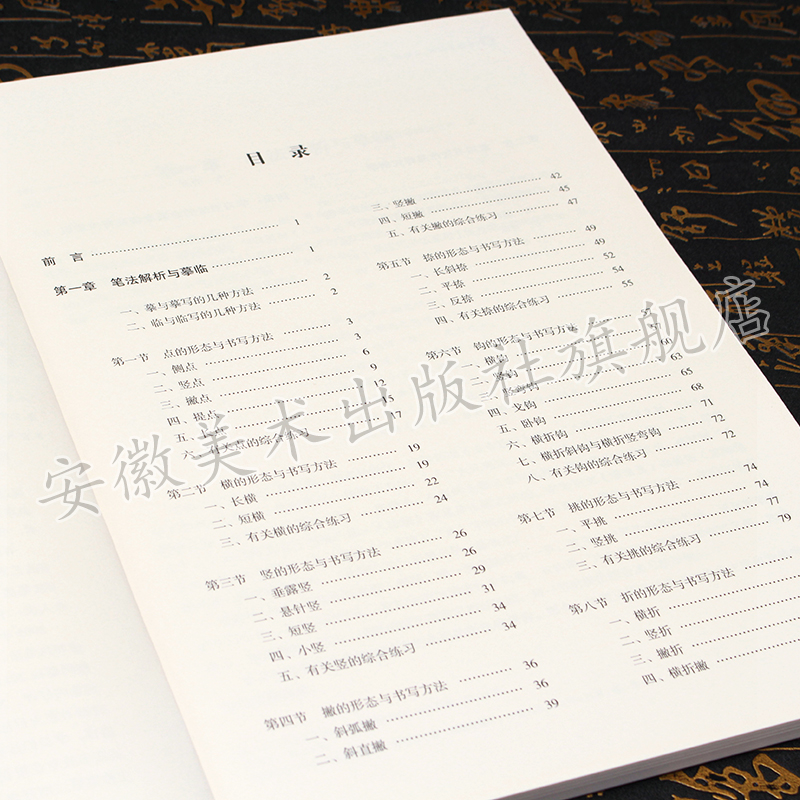 目 录
前 言 ………… 1
第一章 笔法解析与摹临 ………… 1
一、摹与摹写的几种方法 ………… 2
二、临与临写的几种方法 ………… 2
第一节 点的形态与书写方法 ………… 3
一、侧点 ………… 3
二、竖点 ………… 6
三、撇点 ………… 9
四、提点 ………… 12
五、 ………… 15
六、有关点的综合练习 ………… 17
第二节 横的形态与书写方法 ………… 19
一、长横 ………… 19
二、短横 ………… 22
三、有关横的综合练习 ………… 24
第三节 竖的形态与书写方法 ………… 26
一、垂露竖 ………… 26
二、悬针竖 ………… 29
三、短竖 ………… 31
四、小竖 ………… 34
五、有关竖的综合练习 ………… 34
第四节 撇的形态与书写方法 ………… 36
一、斜弧撇 ………… 36
二、斜直撇 ………… 39
三、竖撇 ………… 42
四、短撇 ………… 45
五、有关撇的综合练习 ………… 47
第五节 捺的形态与书写方法 ………… 49
一、长斜捺 ………… 49
二、平捺 ………… 52
三、反捺 ………… 54
四、有关捺的综合练习 ………… 55
第六节 钩的形态与书写方法 …………
一、横钩 ………… 57
二、竖钩 ………… 60
三、 ………… 63
四、戈钩 ………… 65
五、卧钩 ………… 68
六、横折钩 ………… 71
七、横折斜钩与横折竖弯钩 ………… 72
八、有关钩的综合练习 ………… 72
第七节 挑的形态与书写方法 ………… 74
一、平挑 ………… 74
二、竖挑 ………… 77
三、有关挑的综合练习 ………… 79
第八节 折的形态与书写方法 …………
一、横折 …………
二、竖折 …………
三、撇折 …………
四、横折撇 …………
安徽美术出版社旗舰店